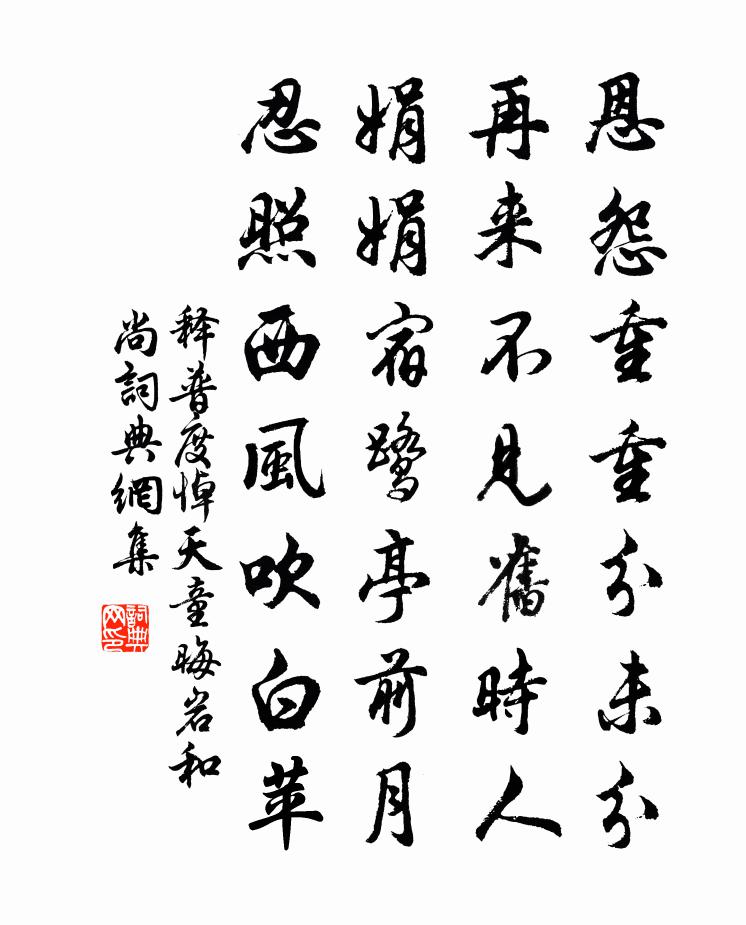 恩怨重重分未分
再来不见舊時人
娟娟宿鷺亭前月
忍照西風吹白苹
释普度悼天童晦岩和
尚詞典網集
詞典网印